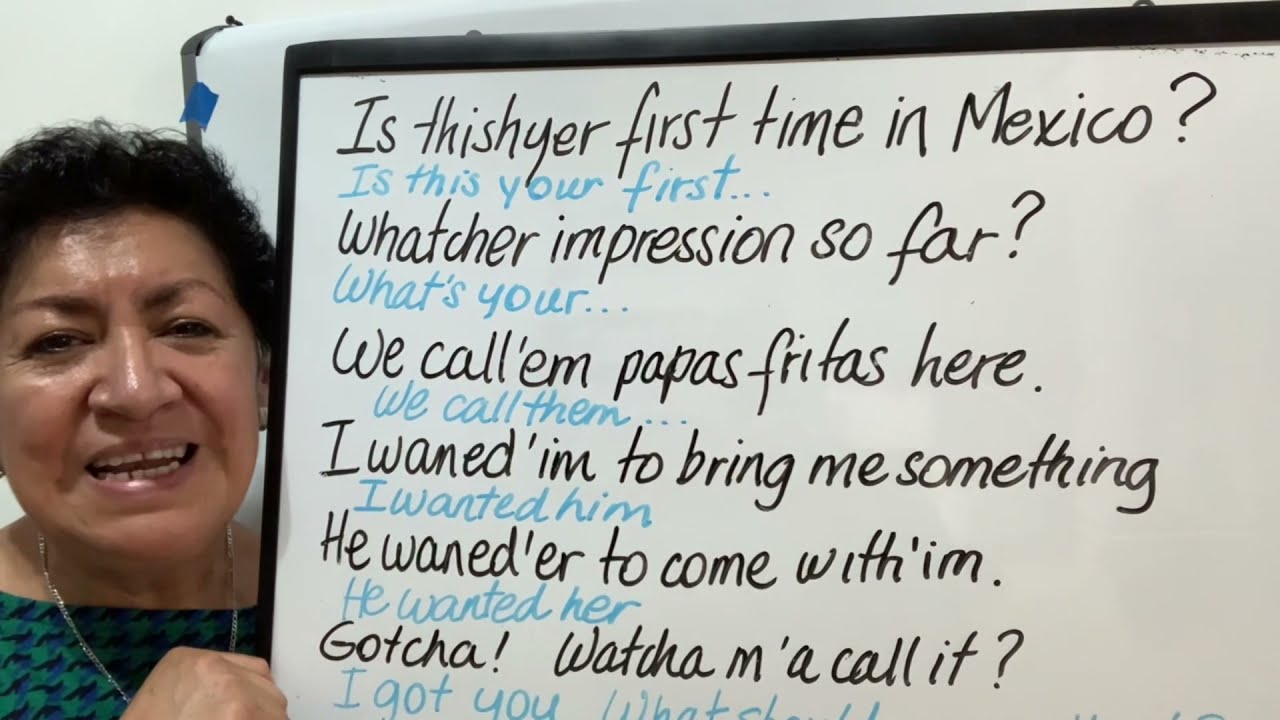 Is thishyer first time in Mexico?
Is this your first...
Whatcher impression so far?
What's your...
We call'em papas fritas here.
We call them...
I waned'im to bring me something
I wanted him
He waned'er to come with'im.
He wanted her
Gotcha! Watcha m'a call it?
I got you What